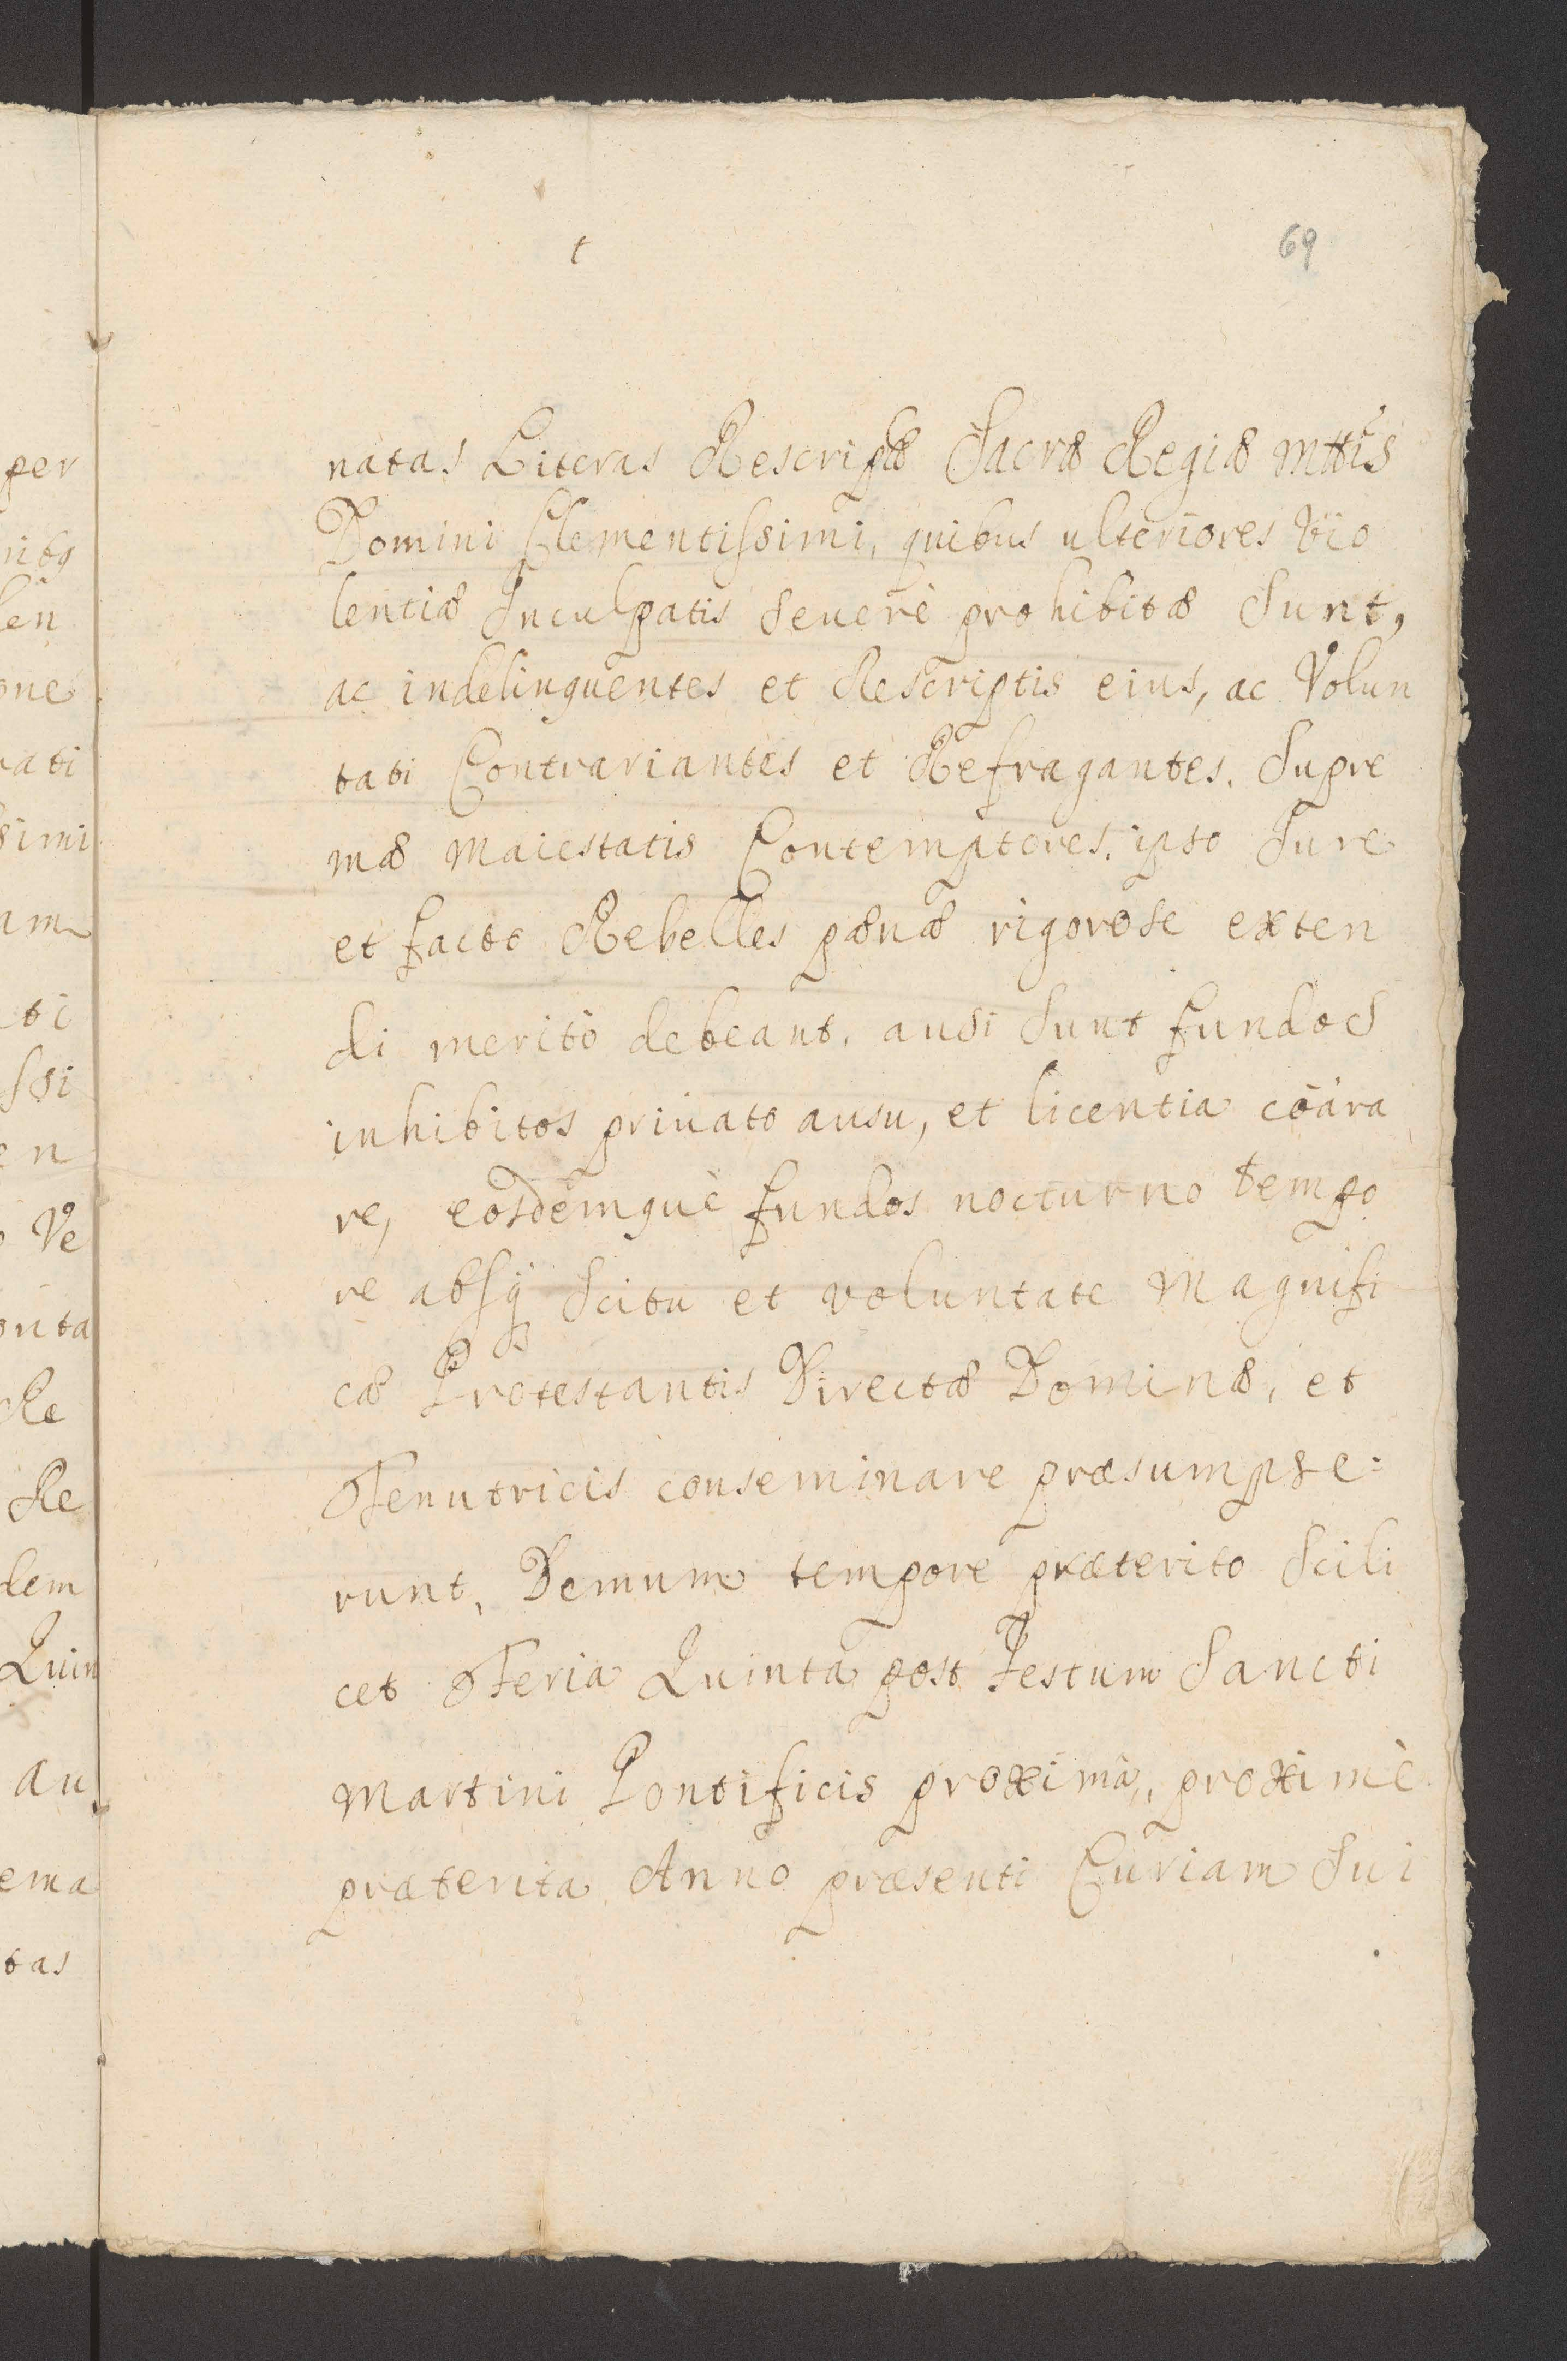 69
natas Literas Rescriptæ Sacræ Regiæ Mttis
Domini Clementissimi, quibus ulteriores Vio
lentiæ Inculpatis seuerè prohibitæ sunt,
ac indelinquentes et Rescriptis eius, ac Volun
tati Contrariantes et Refragantes. Supre
mæ Maiestatis Contemptores, ipso Iure
et facto Rebelles pænæ rigorose exten
di meritò debeant, ausi sunt fundos
inhibitos priuato ausu, et licentia cōara
re, eosdemque fundos nocturno tempo
re absq scitu et voluntate Magnifi
cæ Protestantis Directæ Dominæ, et
Tenutricis conseminare præsumpse=
runt, Demum tempore præterito Scili
cet Feria Quinta post Festum Sancti
Martini Pontificis proxima, proximè
præterita Anno præsenti Curiam Sui
per
ritq
len
one
rati
simi
am
ti
ssi
en
Ve
onta
Re
Re
dem
Quin
au
ema
tas